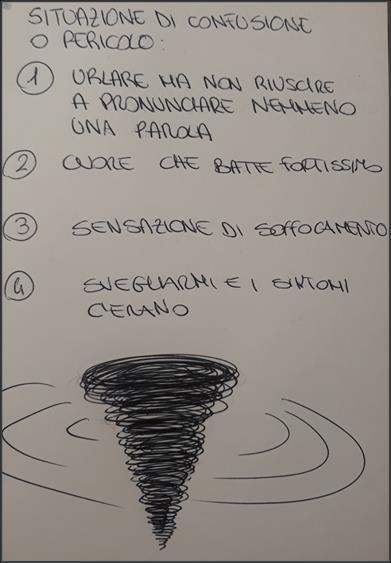 SITUAZIONE DI CONFUSIONE
O PERICOLO:
1 URLARE MA NON RIUSCIRE
A PRONUNCIARE NEMMENO
UNA PAROLA
2 CUORE CHE BATTE FORTISSIMO
3 SENSAZIONE DI SOFFOCAMENTO
4 SVEGLIARMI E I SINTOMI
C'ERANO